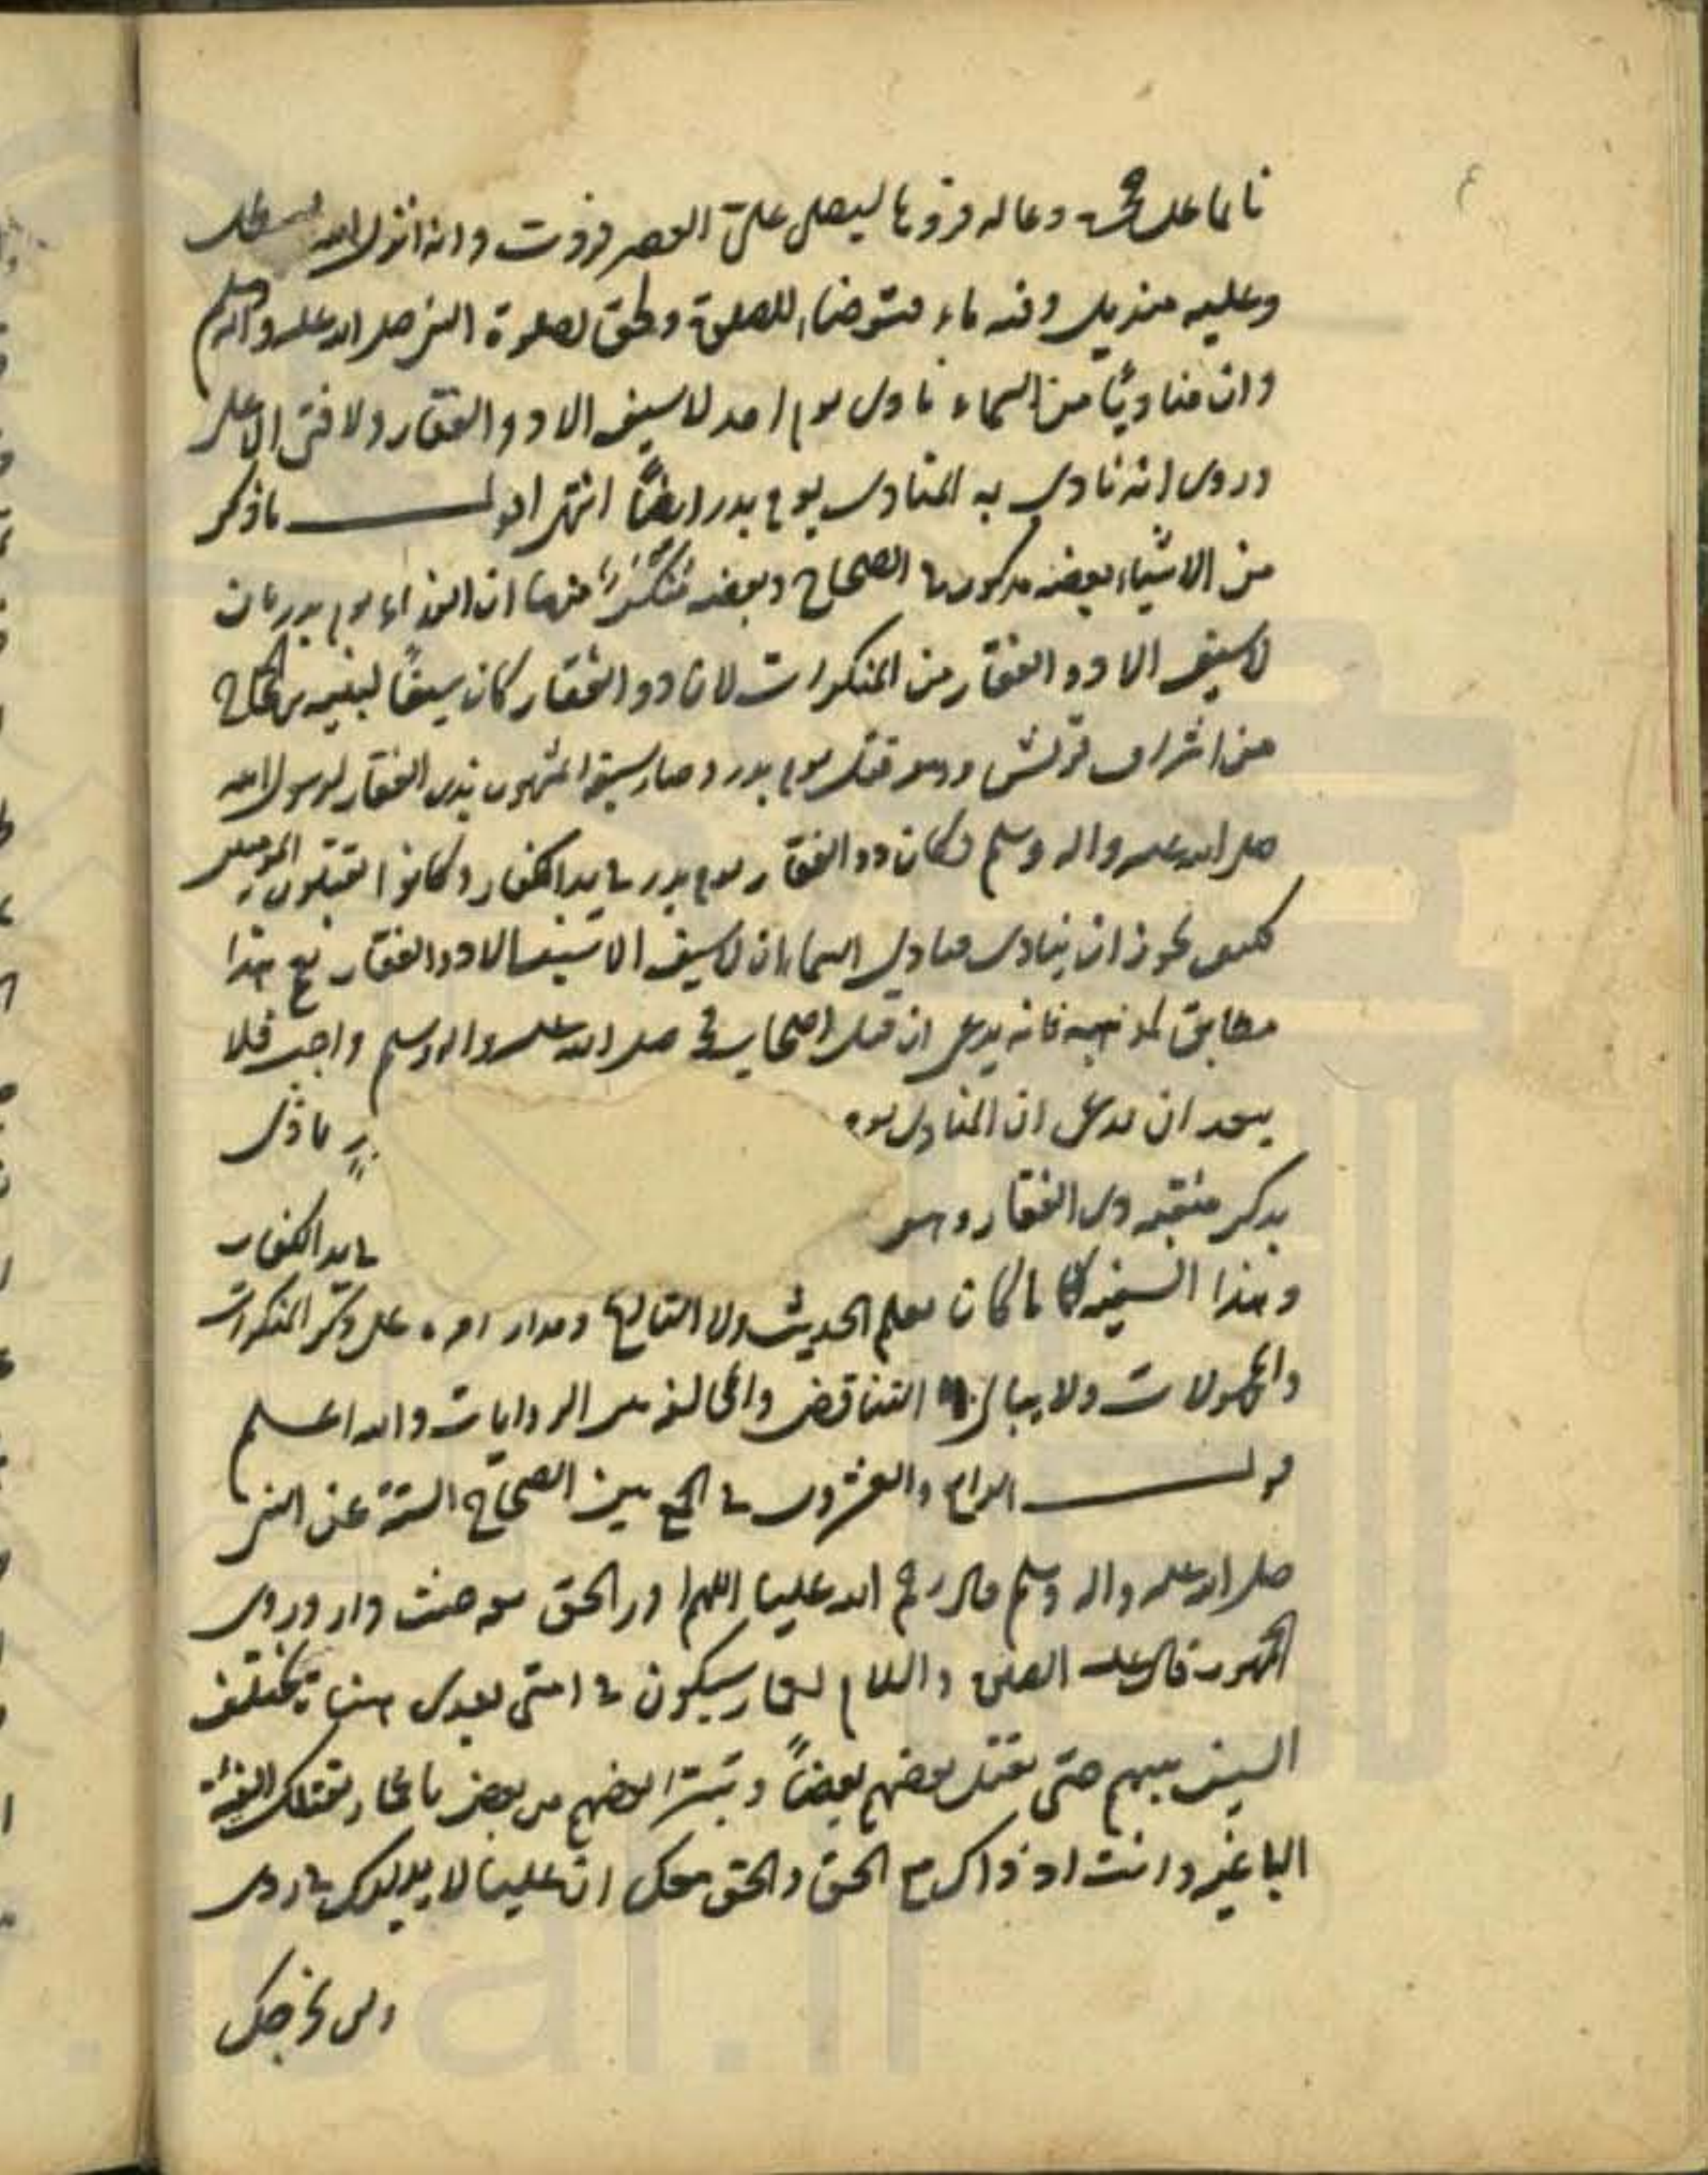 نائما على حجره ودعا له فردها ليصلي علي العصر فردت وانه انزل اليه سطل
وعليه منديل وفيه ماء فتوضاء للصلوة ولحق لصلوة النبي صلى الله عليه واله وسلم
وان مناديًا من السماء نادى يوم احد لا سيف الا ذو الفقار ولا فتى الا علي
وروى انه نادى به المنادى يوم بدر ايضًا انتهى اقول ما ذكر
من الاشياء بعضه مذكور في الصحاح وبعضه منكر منها ان النداء يوم بدر بان
لا سيف الا ذو الفقار من المنكرات لان ذو الفقار كان سيفًا لمنبه بن الحجاج
من اشراف قريش وهو قتل يوم بدر وصار سيفه المشهور بذى الفقار لرسول الله
صلى الله عليه واله وسلم فكان ذو الفقار يوم بدر في يد الكفار وكانوا يقتلون المؤمنين
فكيف يجوز ان ينادى منادى السماء بان لا سيف الا ذو الفقار نعم هذا
مطابق لمذهبه فانه يدعى ان قتل اصحاب صلى الله عليه واله وسلم واجب فلا
يبعد ان يدعى ان المنادى يوم ما ذكر
يذكر منقبة ذى الفقار وهو في يد الكفار
وهذا السفيه ما كان يعلم الحديث ولا التاريخ ومدار امره على ذكر المنكرات
والمجهولات ولا يبالى التناقض والمخالفة بين الروايات والله اعلم
قول الرابع والعشرون في الجمع بين الصحاح الستة عن النبي
صلى الله عليه واله وسلم قال رحم الله عليا اللهم ادر الحق معه حيث دار وروى
الجمهور قال عليه الصلوة والسلام لعمار سيكون في امتى بعدى هناة يختلف
السيف بينهم حتى يقتل بعضهم بعضًا ويتبرا بعضهم من بعض يا عمار تقتلك الفئة
الباغية وانت اذ ذاك مع الحق والحق معك ان عليا لا يدليك في ردى
ولن يخرجك